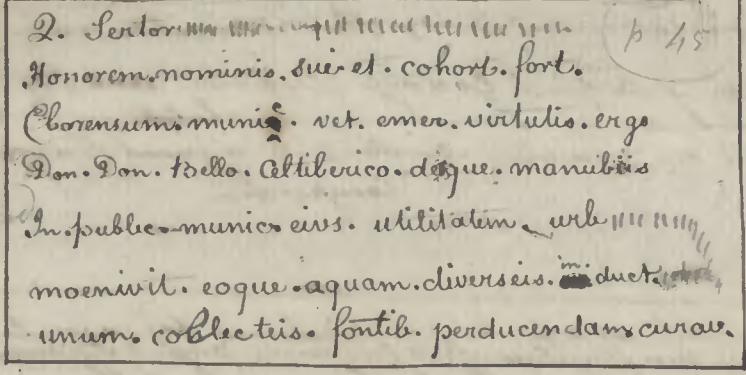 Q. Sertor
p 45
Honorem. nominis. sui. et. cohort. fort.
Eborensum. munic. vet. emer. virtutis. ergo
Don. Don. bello. Celtiberico. deque. manubiis
In. public. munic. eius. utilitatem. urb
moenivit. eoque. aquam. diverseis. induct.
unum. collecteis. fontib. perducendam. curav.